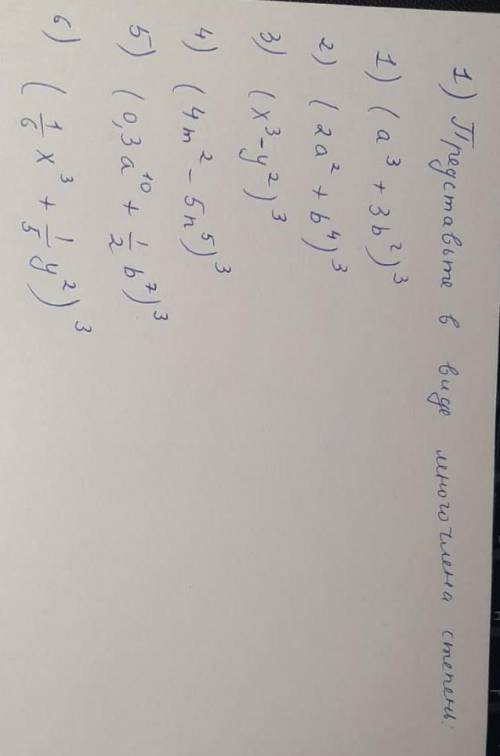 1) Представьте в виде многочлена степень:
1) (a³ + 3b²)³
2) (2a² + b⁴)³
3) (x³ - y²)³
4) (4m² - 5n⁵)³
5) (0,3a¹⁰ + 1/2 b⁷)³
6) (1/6 x³ + 1/5 y²)³